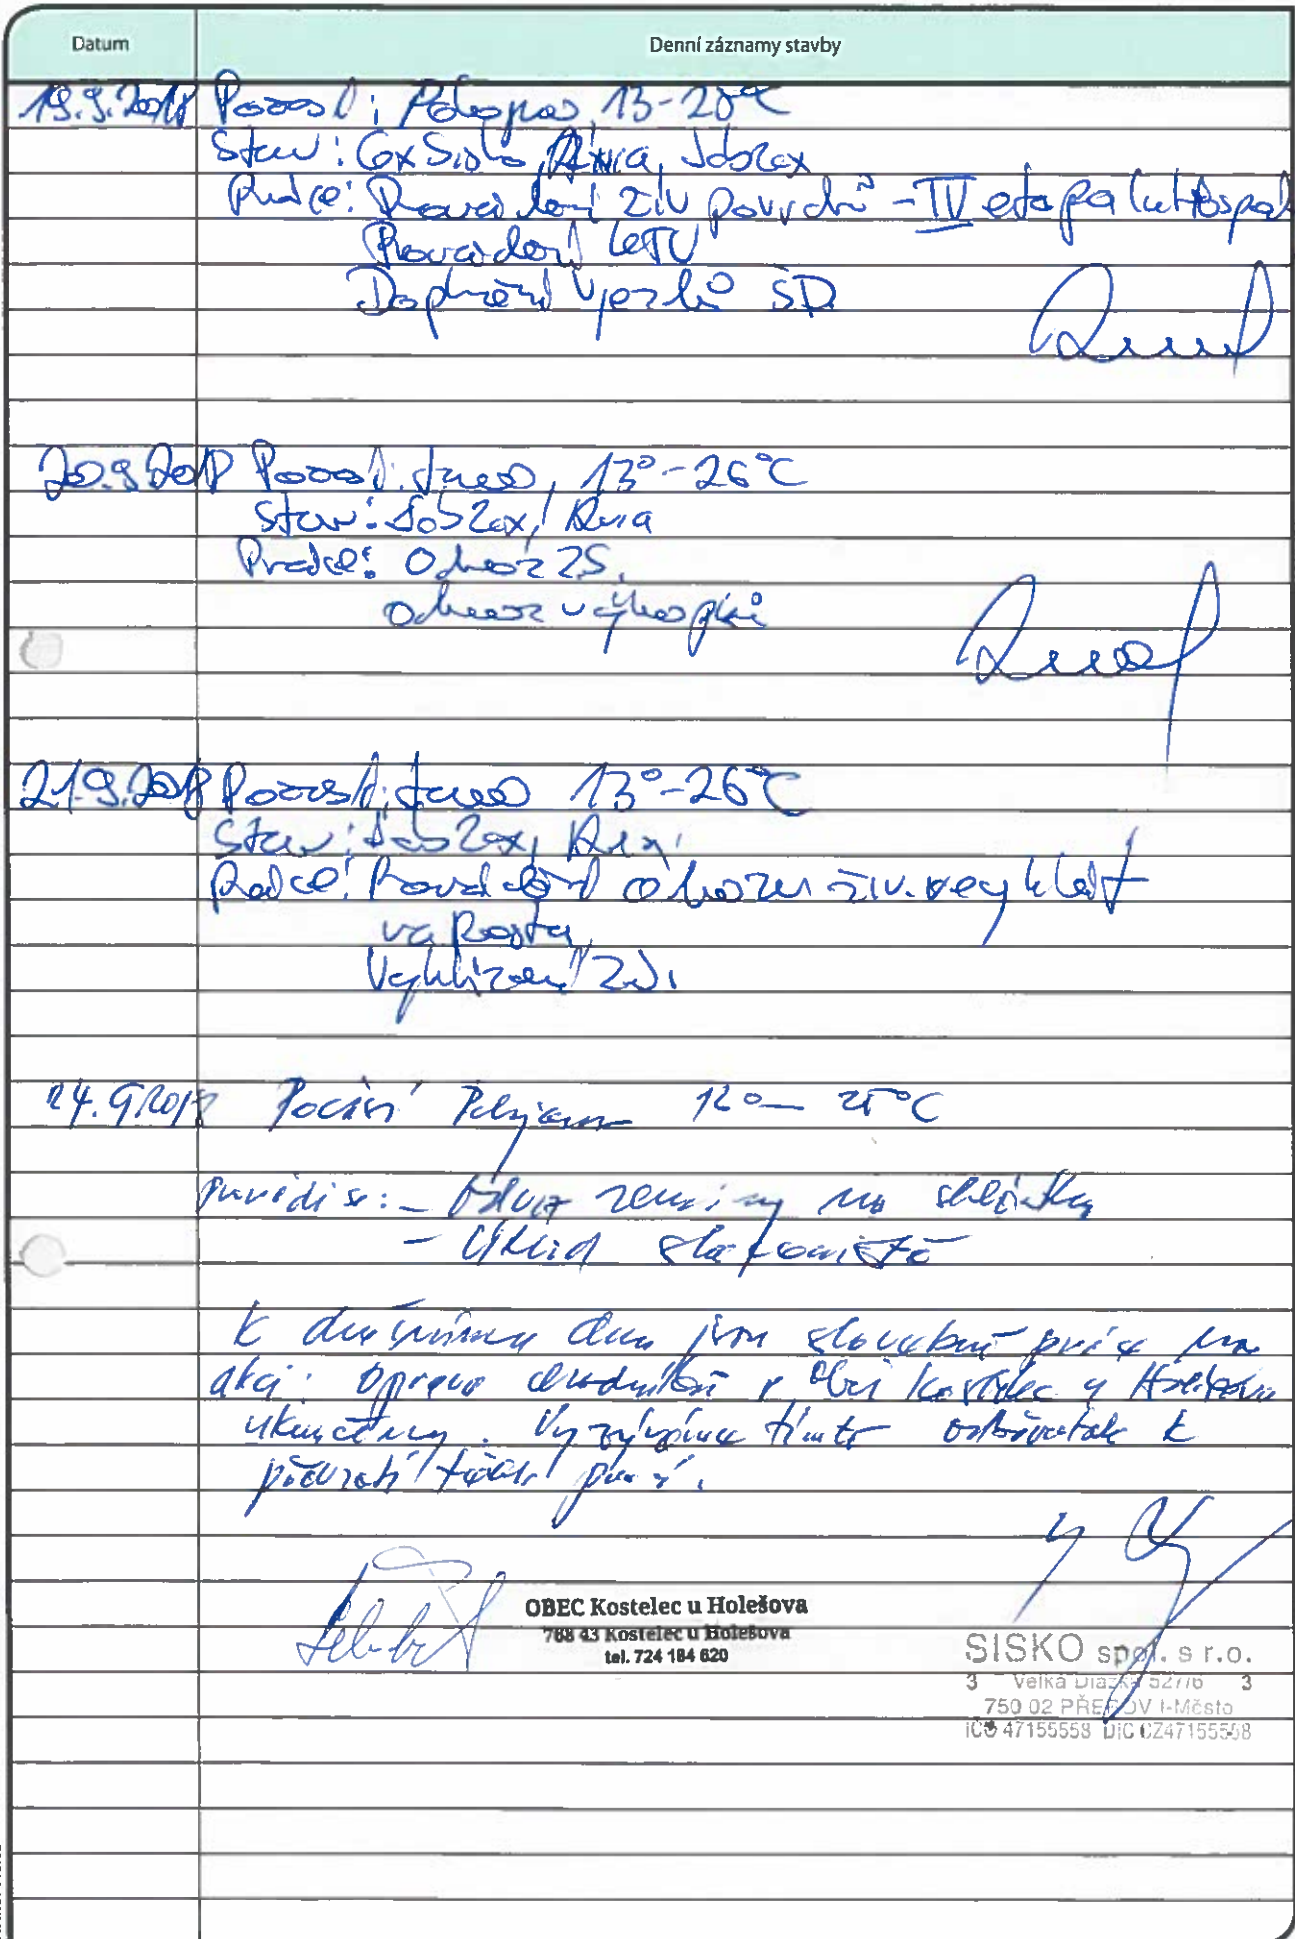 Datum Denní záznamy stavby
19.9.2018 Počasí: 13-20°C
Stav: 6x Sisko, Avia,
Práce: Provádění živ povrchů - IV etapa
Provádění
Doplnění vjezdů ŠD
20.9.2018 Počasí: 13°-26°C
Stav: Avia
Práce: Odvoz ZS,
odvoz výkopků
21.9.2018 Počasí: 13°-26°C
Stav:
Práce: Provádění odvozu živ.
Vyklizení
24.9.2018 Počasí 12°- °C
Provádí se: - Odvoz zeminy na skládku
- Úklid staveniště
K dnešnímu dnu jsou stavební práce na
akci: Oprava chodníků v obci Kostelec u Holešova
ukončeny. Vyzýváme tímto odběratele k
převzetí těchto prací.
OBEC Kostelec u Holešova
768 43 Kostelec u Holešova
tel. 724 184 620
SISKO spol. s r.o.
3 Velká Dlážka 527/6 3
750 02 PŘEROV I-Město
IČO 47155558 DIČ CZ47155558